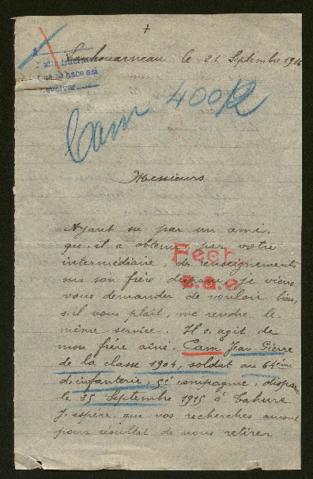 +
Lanhouarneau le 21 Septembre 1916
Cam 400R
Messieurs
Rech.
Ayant su par un ami,
qui a obtenu par votre
intermédiaire, des renseignements
sur son frère disparu, je viens
vous demander de vouloir bien
s'il vous plaît, me rendre le
même service. Il s'agit de
mon frère ainé. Cam Jean Pierre
de la classe 1904, soldat au
d'infanterie, 5e compagnie, disparu
le 25 Septembre 1915 à Tahure
J'espère que vos recherches auront
pour résultat de nous retirer